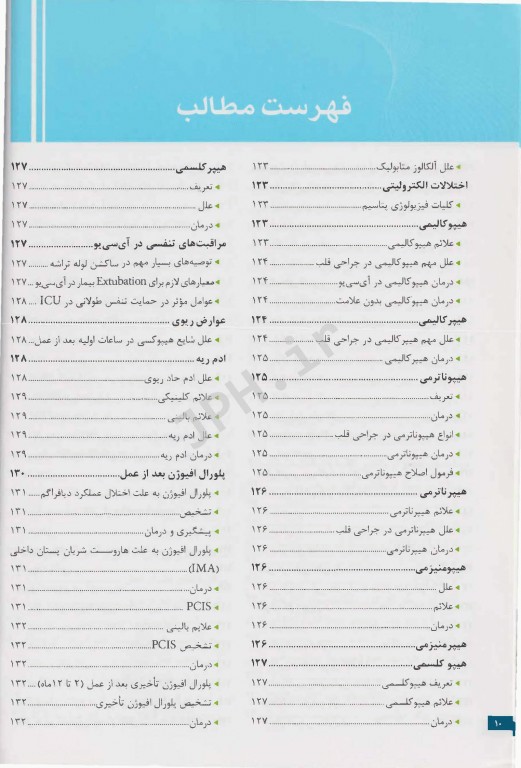 فهرست مطالب
علل آلکالوز متابولیک ۱۲۳
اختلالات الکترولیتی ۱۲۳
کلیات فیزیولوژی پتاسیم ۱۲۳
هیپوکالیمی ۱۲۳
علائم هیپوکالیمی ۱۲۳
علل مهم هیپوکالیمی در جراحی قلب ۱۲۴
درمان هیپوکالیمی در آی‌سی‌یو ۱۲۴
درمان هیپوکالیمی بدون علامت ۱۲۴
هیپرکالیمی ۱۲۴
علل مهم هیپرکالیمی در جراحی قلب ۱۲۴
درمان هیپرکالیمی ۱۲۵
هیپوناترمی ۱۲۵
تعریف ۱۲۵
درمان ۱۲۵
انواع هیپوناترمی در جراحی قلب ۱۲۵
درمان هیپوناترمی ۱۲۵
فرمول اصلاح هیپوناترمی ۱۲۵
هیپرناترمی ۱۲۶
علائم هیپرناترمی ۱۲۶
علل هیپرناترمی در جراحی قلب ۱۲۶
درمان هیپرناترمی ۱۲۶
هیپومنیزمی ۱۲۶
علل ۱۲۶
علائم ۱۲۶
درمان ۱۲۶
هیپرمنیزمی ۱۲۶
هیپو کلسمی ۱۲۷
تعریف هیپوکلسمی ۱۲۷
علائم هیپوکلسمی ۱۲۷
درمان ۱۲۷
هیپرکلسمی ۱۲۷
تعریف ۱۲۷
علل ۱۲۷
درمان ۱۲۷
مراقبت‌های تنفسی در آی‌سی‌یو ۱۲۷
توصیه‌های بسیار مهم در ساکشن لوله تراشه ۱۲۷
معیارهای لازم برای Extubation بیمار در آی‌سی‌یو ۱۲۷
عوامل مؤثر در حمایت تنفس طولانی در ICU ۱۲۸
عوارض ریوی ۱۲۸
علل شایع هیپوکسی در ساعات اولیه بعد از عمل ۱۲۸
ادم ریه ۱۲۸
علل ادم حاد ریوی ۱۲۸
علائم کلینیکی ۱۲۹
علائم بالینی ۱۲۹
علل ادم ریه ۱۲۹
درمان ادم ریه ۱۲۹
پلورال افیوژن بعد از عمل ۱۳۰
پلورال افیوژن به علت اختلال عملکرد دیافراگم ۱۳۱
تشخیص ۱۳۱
پیشگیری و درمان ۱۳۱
پلورال افیوژن به علت هاروست شریان پستان داخلی
(IMA) ۱۳۱
درمان ۱۳۱
PCIS ۱۳۱
علایم بالینی ۱۳۲
تشخیص PCIS ۱۳۲
درمان ۱۳۲
پلورال افیوژن تأخیری بعد از عمل (۲ تا ۱۲ماه) ۱۳۲
تشخیص پلورال افیوژن تأخیری ۱۳۲
درمان ۱۳۲
۱۰
JPH.ir